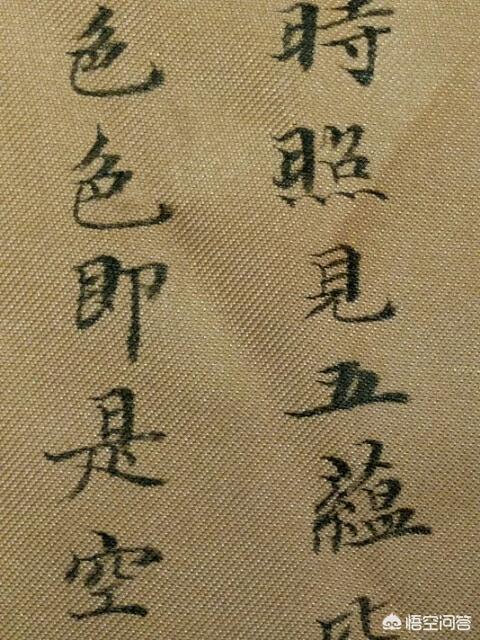 時照見五蘊
色色即是空
悟空问答